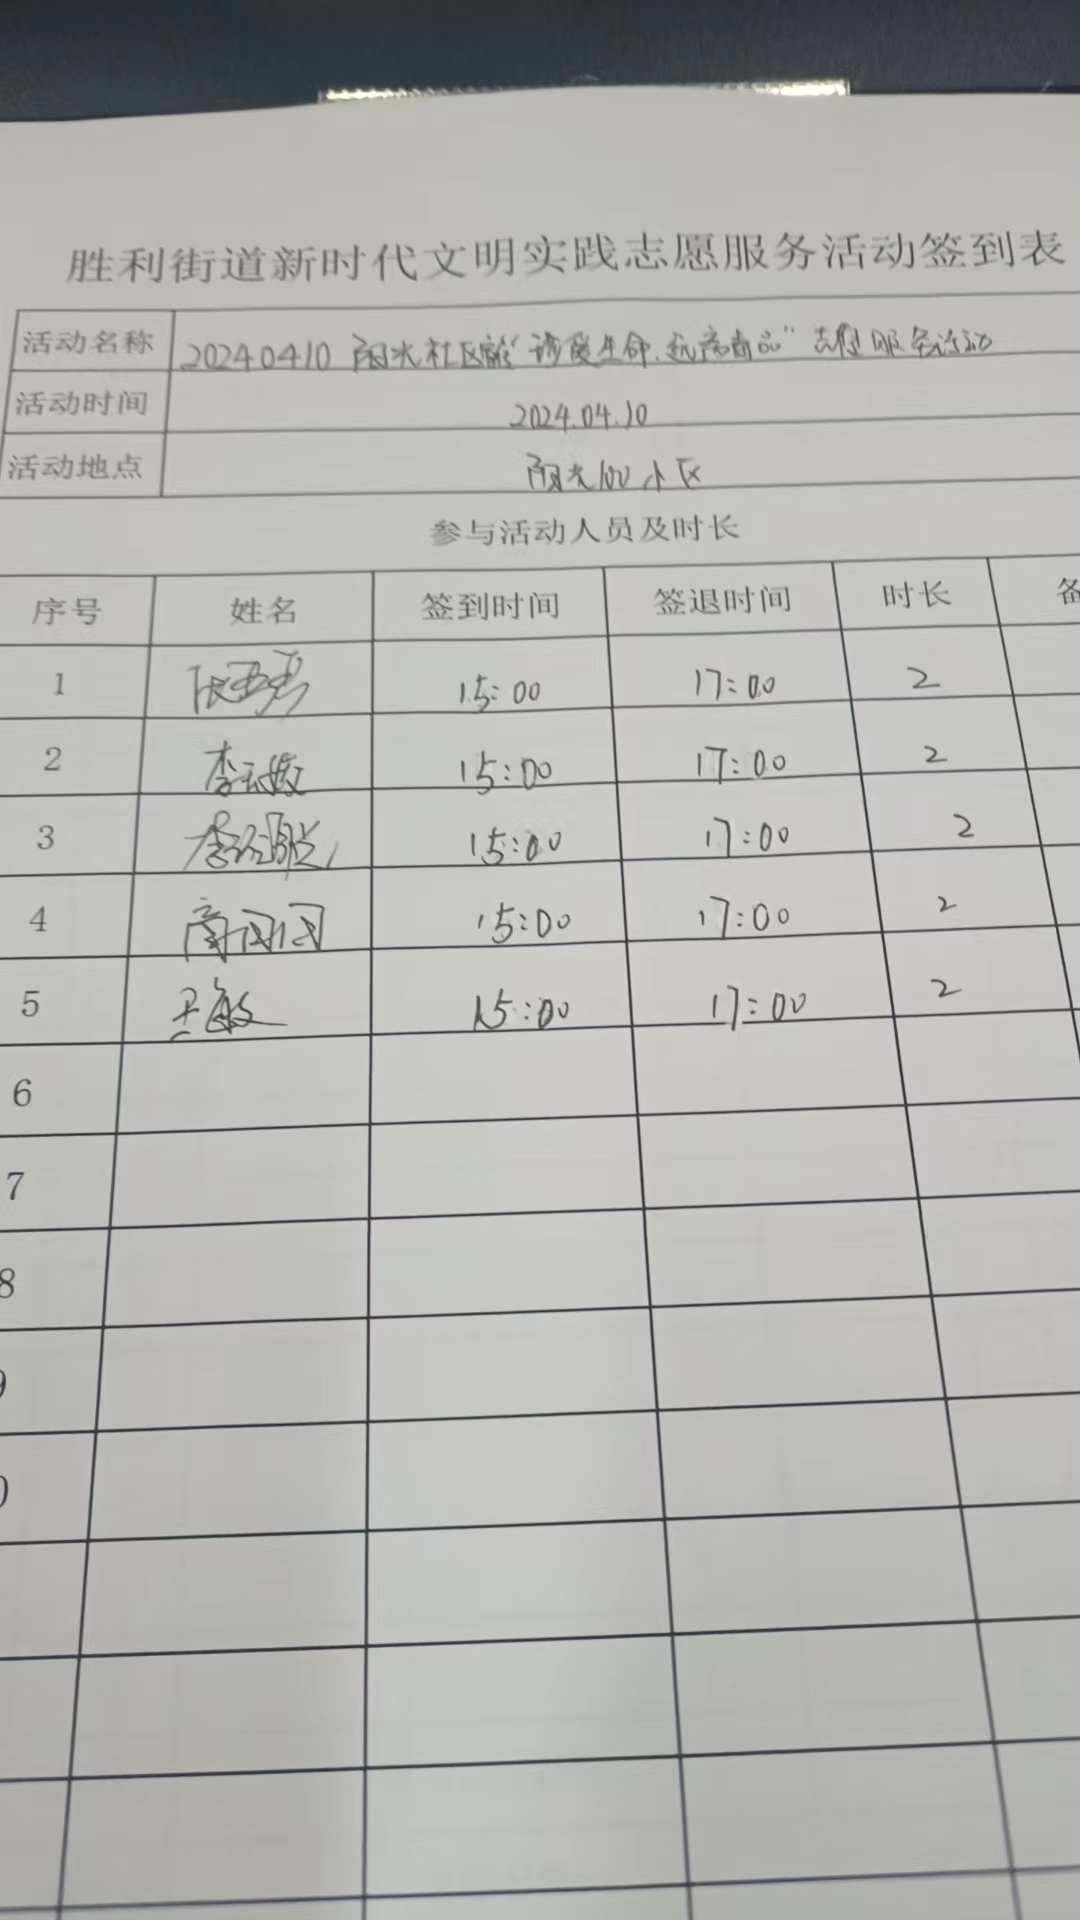 胜利街道新时代文明实践志愿服务活动签到表
活动名称 20240410 阳光社区 "珍爱生命,远离毒品" 志愿服务活动
活动时间 2024.04.10
活动地点 阳光100小区
参与活动人员及时长
序号 姓名 签到时间 签退时间 时长 备
1 15:00 17:00 2
2 李云媛 15:00 17:00 2
3 李 15:00 17:00 2
4 商团团 15:00 17:00 2
5 王敏 15:00 17:00 2
6
7
8
9
0